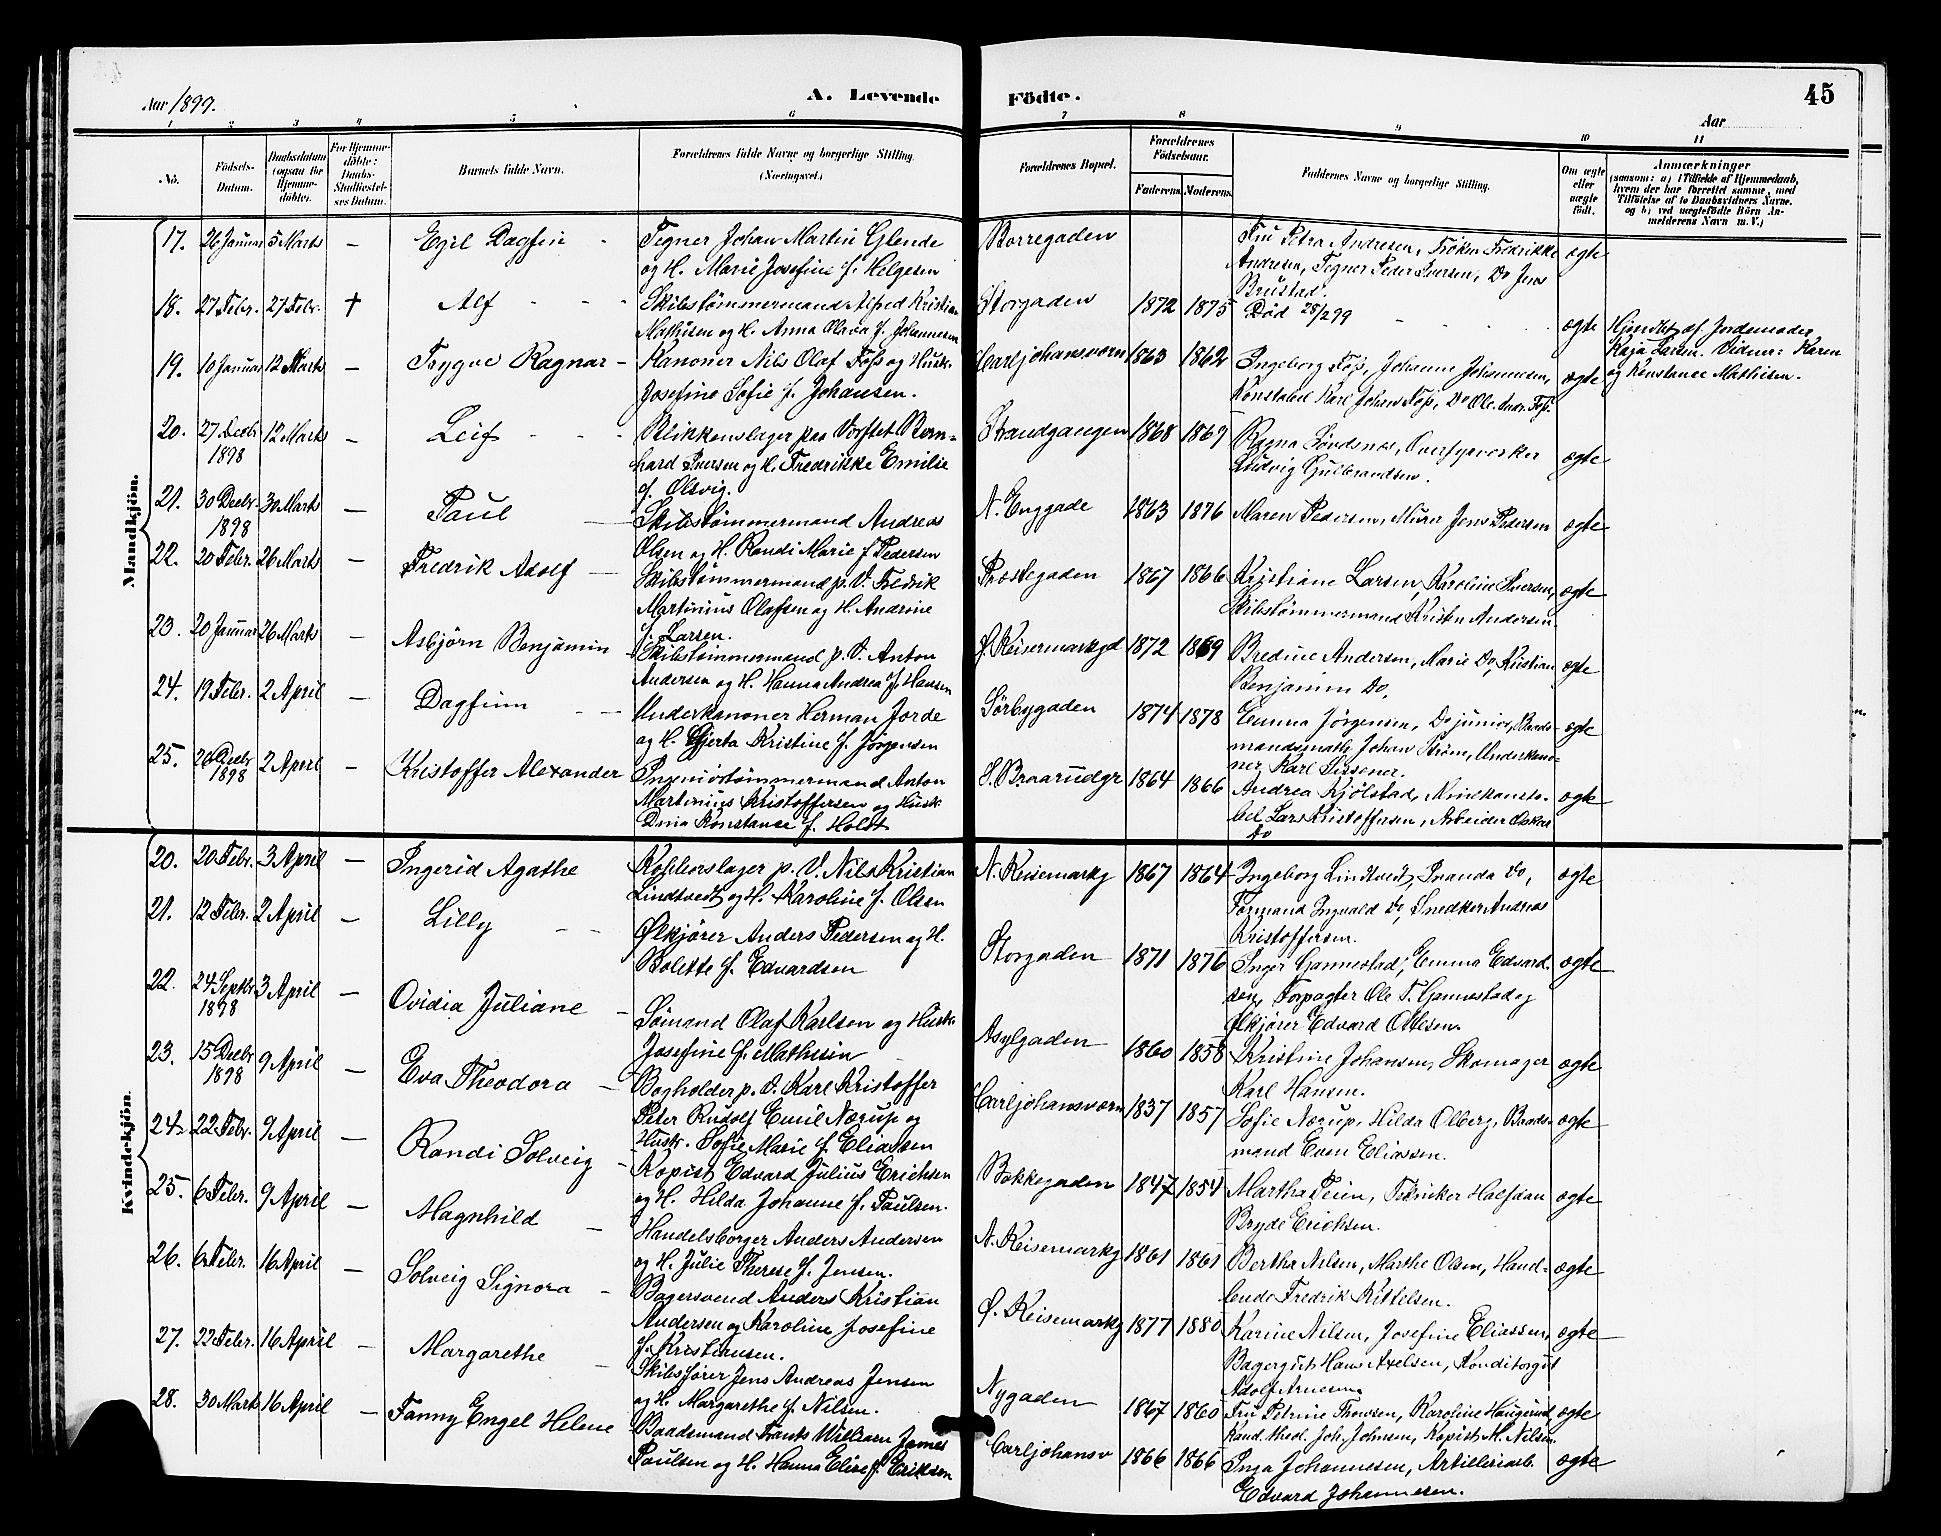 Aar 1899.
A. Levende Födte.
45
Aar
1 2 3 4 5 6 7 8 9 10 11
No.
Födsels-Datum.
Daabsdatum (ogsaa for Hjemme-döbte).
For Hjemme-döbte: Daabs-Stadfæstelses Datum.
Barnets fulde Navn.
Forældrenes fulde Navne og borgerlige Stilling. (Næringsvei.)
Forældrenes Bopæl.
Forældrenes Födselsaar.
Faderens. Moderens.
Faddernes Navne og borgerlige Stilling.
Om ægte eller uægte födt.
Anmærkninger
(saasom: a) i Tilfælde af Hjemmedaab,
hvem der har forrettet samme, med
Tilföielse af to Daabsvidners Navne,
og b) ved uægtefödte Börn An-
melderens Navn m. V.)
Mandkjön.
17. 26 Januar 5 Marts — Egil Dagfin - Tegner Johan Martin Glende
og H. Marie Josefine f. Helgesen
Borregaden
Fru Petra Andresen, Frøken Fredrikke
Andresen, Tegner Peder Iversen, Do Jens
Brustad.
ægte
18. 27 Febr. 27 Febr. † Alf - - - Skibstømmermand Alfred Kristian
Mathisen og H. Anna Olova f. Johannesen
Storgaden 1872 1875
Død 28/2 99
ægte
Hjemdbt af Jordemoder
Kaja Larsen. Vidner: Karen
og Konstance Mathisen.
19. 10 Januar 12 Marts — Trygve Ragnar - Kanoner Nils Olaf Foss og Hustr.
Josefine Sofie f. Johansen.
Carljohansværn 1863 1862
Ingeborg Foss, Johanne Johannesen,
Konstabel Karl Johan Foss, Do Ole Andr. Foss.
ægte
20. 27 Decbr 1898 12 Marts — Leif - - - Blikkenslager paa Værftet Bern-
hard Iversen og H. Fredrikke Emilie
f. Olsvig.
Strandgangen 1868 1867
Ragna Løvdsnes, Overfyrverker
Ludvig Gulbrandsen.
ægte
21. 30 Decbr. 1898 30 Marts — Paul — Skibstømmermand Andreas
Olsen og H. Randi Marie f. Pedersen
N. Enggade 1863 1876
Maren Pedersen, Murer Jens Pedersen
ægte
22. 20 Febr. 26 Marts — Fredrik Adolf — Skibstømmermand p. V. Fredrik
Martinius Olafsen og H. Andrine
f. Larsen.
Præstegaden 1867 1866
Kristiane Larsen, Karoline Iversen,
Skibstømmermand Kristen Andersen.
ægte
23. 20 Januar 26 Marts — Asbjörn Benjamin - Skibstömmermand p. V. Anton
Andersen og H. Hanna Andrea f. Hansen
Ø. Keisermarkgd 1872 1869
Bredine Andersen, Marie Do, Kristian
Benjamin Do.
ægte
24. 19 Febr. 2 April — Dagfinn - - Underkanoner Herman Jorde
og H. Gjerta Kristine f. Jörgensen
Sörbygaden 1874 1878
Emma Jörgensen, Do junior, Baads-
mandsmath Johan Ström, Underkano-
ner Karl Sissener.
ægte
25. 26 Decbr 1898 2 April — Kristoffer Alexander Ingeniörtömmermand Anton
Martinius Kristoffersen og Hustr.
Dina Konstance f. Holdt
S. Braarudgt 1864 1866
Andrea Kjölstad, Minekonsta-
bel Lars Kristoffersen, Arbeider Oskar
Do
ægte
Kvindekjön.
20. 20 Febr. 3 April — Ingerid Agathe Kobberslager p. V. Nils Kristian
Lindtvedt og H. Karoline f. Olsen
N. Keisemarkg 1867 1864
Ingeborg Lindtvedt, Inanda Do,
Formand Ingvald Do, Snedker Andreas
Kristoffersen.
ægte
21. 12 Febr. 2 April — Lilly - - Ølkjører Anders Pedersen og H.
Bolette f. Edvardsen
Storgaden 1871 1876
Inger Gannestad, Emma Edvard-
sen, Forpagter Ole T. Gannestad og
Ølkjører Edvard Olsen.
ægte
22. 24 Septbr 1898 3 April — Ovidia Juliane - Sömand Olaf Karlsen og Hustr.
Josefine f. Mathisen
Asylgaden 1860 1858
Kristine Johansen, Skomager
Karl Hansen.
ægte
23. 15 Decbr 1898 9 April — Eva Theodora - Bogholder p. V. Karl Kristoffer
Peter Rudolf Emil Nærup og
Hustr. Sofie Marie f. Eliassen
Carljohansværn 1837 1857
Sofie Nærup, Hilda Olberg, Baads-
mand Even Eliassen.
ægte
24. 22 Febr. 9 April — Randi Solveig - Kopist Edvard Julius Erichsen
og H. Hilda Johanne f. Paulsen.
Bakkegaden 1847 1854
Martha Tein, Tekniker Halfdan
Bryde Erichsen.
ægte
25. 6 Febr. 9 April — Magnhild - Handelsborger Anders Andersen
og H. Julie Therese f. Jensen.
N. Keisemarkg 1861 1861
Bertha Nilsen, Marthe Olsen, Hand-
lende Fredrik Kittelsen.
ægte
26. 6 Febr. 16 April — Solveig Signora - Bagersvend Anders Kristian
Andersen og Karoline Josefine
f. Kristiansen.
Ø. Keisemarkg 1877 1880
Karine Nilsen, Josefine Eliassen,
Bagergut Hans Axelsen, Konditorgut
Adolf Arnesen.
ægte
27. 22 Febr. 16 April — Margarethe - Skibsfører Jens Andreas Jensen
og H. Margarethe f. Nilsen.
Nygaden 1867 1860
Fru Petrine Thowsen, Karoline Haugerud,
Kand. theol. Joh. Johnsen, Kopist M. Nilsen.
ægte
28. 30 Marts 16 April — Fanny Engel Helene Baadsmand Frants William James
Paulsen og H. Hanna Elise f. Eriksen
Carljohansv 1866 1866
Inga Johannesen, Artilleriarb.
Edvard Johannesen.
ægte